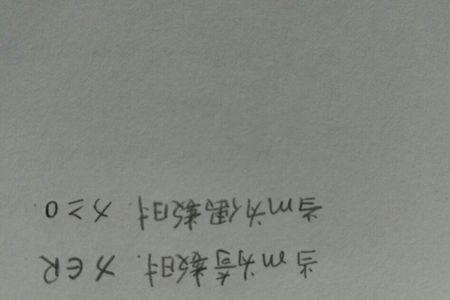 当m为奇数时. x∈R
当m为偶数时. x≥0.